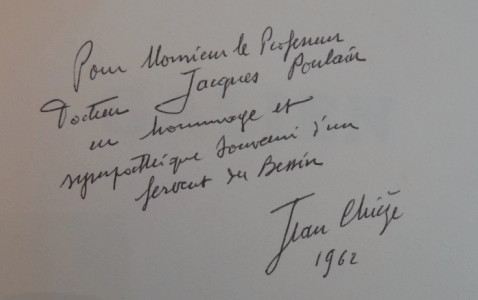 Pour Monsieur le Professeur
Docteur Jacques Poulain
en hommage et
sympathique souvenir d'un
fervent du Bessin
Jean Chièze
1962